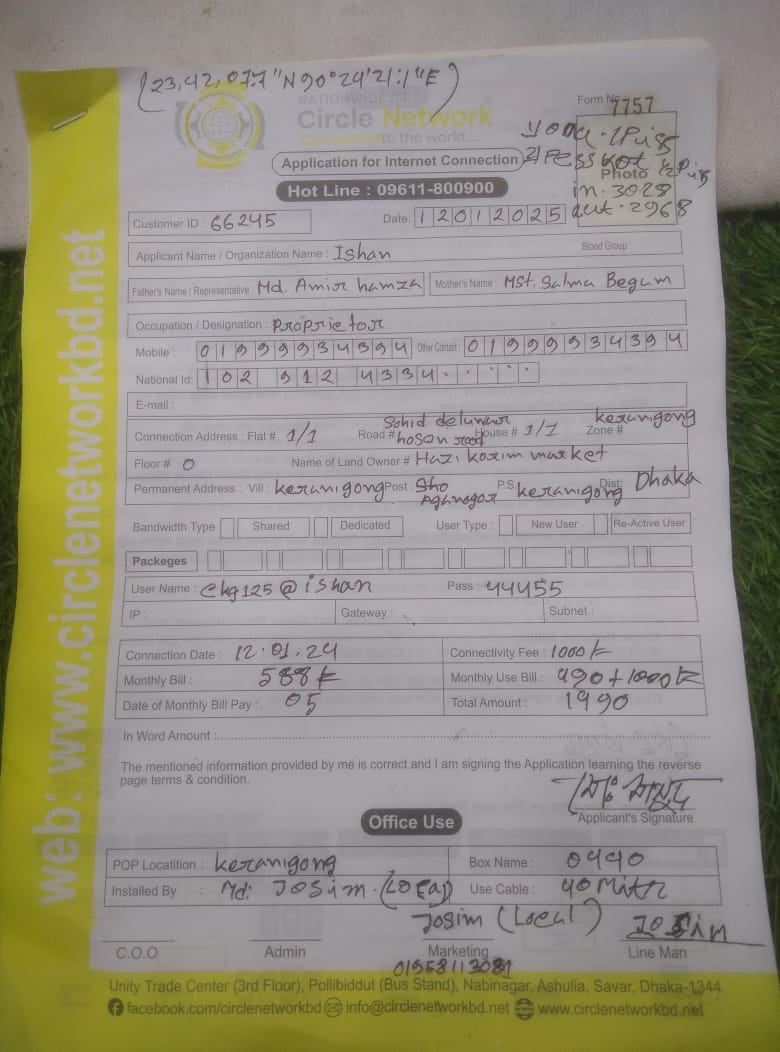 (23,42,07.7"N 90°24'21.1"E)
NATIONWIDE ISP
Circle Network
Connected to the world....
Form No : 7757
Application for Internet Connection
Photo
in. 3028
out. 2968
Hot Line : 09611-800900
Customer ID : 66245 Date: 12012025
Applicant Name / Organization Name : Ishan Blood Group :
Father's Name / Representative : Md. Amir hamza Mother's Name : MSt. Salma Begum
Occupation / Designation : Proprietor
Mobile : 01999934394 Other Contact : 01999934394
National Id: 102 912 4334
E-mail :
Connection Address : Flat # 1/1 Road # Sohid deluwar hosen road House # 1/1 Zone # keranigong
Floor # 0 Name of Land Owner # Hazi korim market
Permanent Address : Vill : keranigong Post : P.S. keranigong Dist: Dhaka
Bandwidth Type Shared Dedicated User Type : New User Re-Active User
Packeges
User Name : Ckg125@ishan Pass : 44455
IP : Gateway : Subnet :
Connection Date : 12.01.24 Connectivity Fee : 1000
Monthly Bill : 588 Monthly Use Bill : 990+1000
Date of Monthly Bill Pay : 05 Total Amount : 1990
In Word Amount :
The mentioned information provided by me is correct and I am signing the Application learning the reverse
page terms & condition.
Applicant's Signature
Office Use
POP Locatition : keranigong Box Name : 0440
Installed By : Md: Josim. (Local) Use Cable : 40 Mitr
Josim (Local) Josim
C.O.O Admin Marketing Line Man
Unity Trade Center (3rd Floor), Pollibiddut (Bus Stand), Nabinagar, Ashulia, Savar, Dhaka-1344
facebook.com/circlenetworkbd info@circlenetworkbd.net www.circlenetworkbd.net
web: www.circlenetworkbd.net